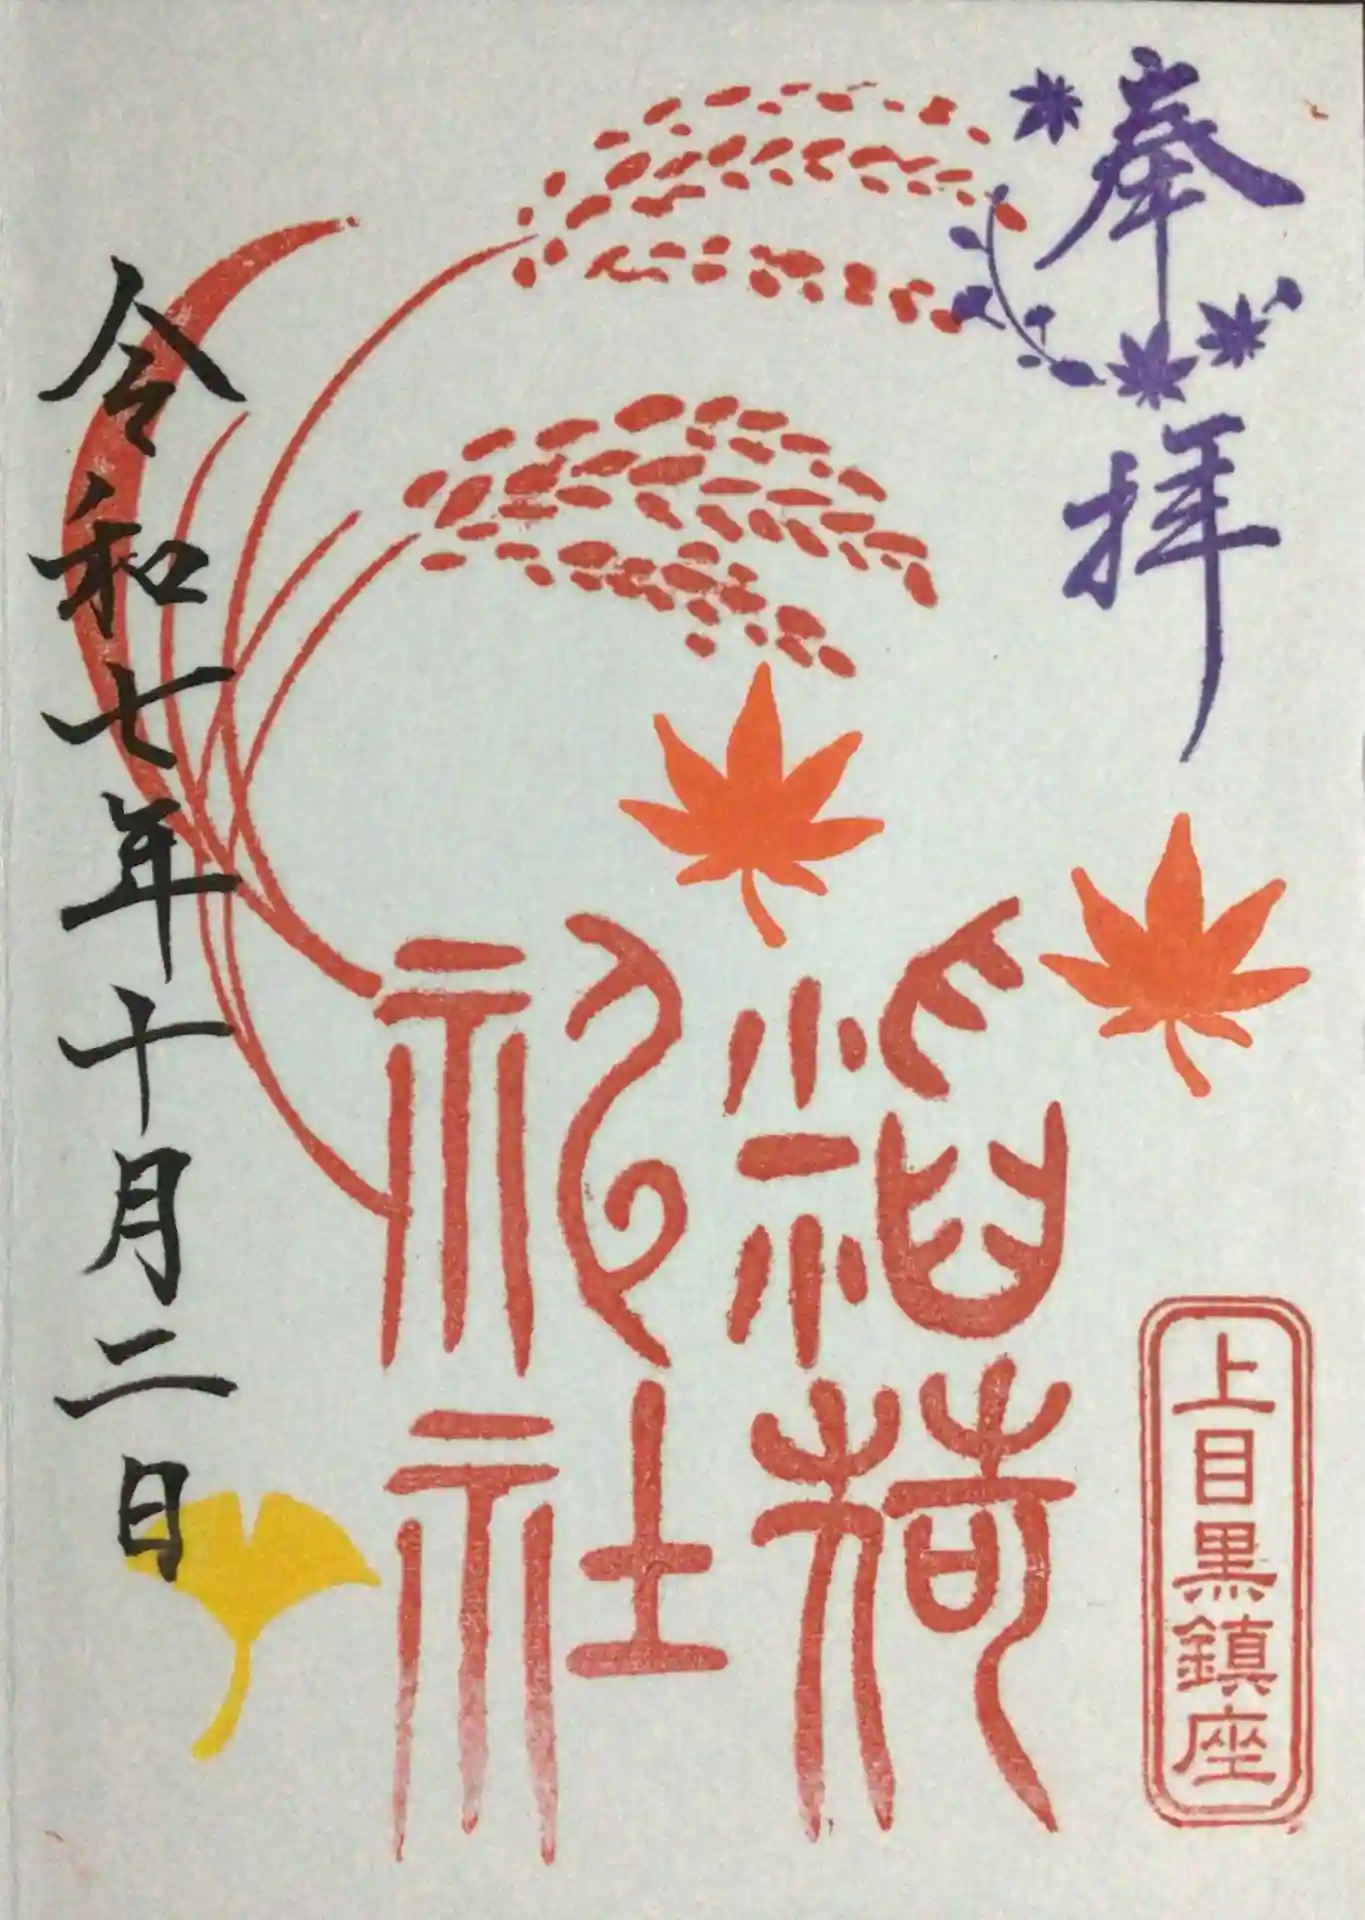 奉拝
上目黒鎮座
稲荷
神社
令和七年十月二日